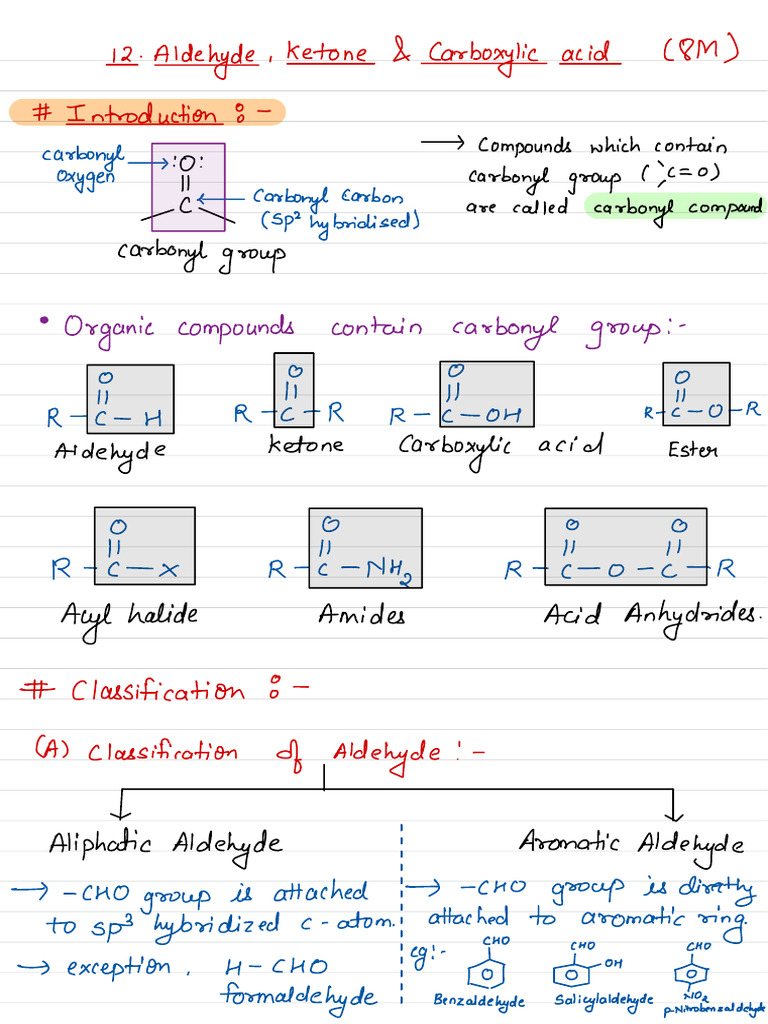 12. Aldehyde, Ketone & Carboxylic acid (8M)
# Introduction :-
carbonyl oxygen → :O:
||
C ← Carbonyl Carbon (sp² hybridised)
carbonyl group
→ Compounds which contain
carbonyl group (>C=O)
are called carbonyl compound
• Organic compounds contain carbonyl group:-
O O O O
|| || || ||
R-C-H R-C-R R-C-OH R-C-O-R
Aldehyde Ketone Carboxylic acid Ester
O O O O
|| || || ||
R-C-X R-C-NH₂ R-C-O-C-R
Acyl halide Amides Acid Anhydrides.
# Classification :-
(A) Classification of Aldehyde :-
Aliphatic Aldehyde
→ -CHO group is attached
to sp³ hybridized c-atom.
→ exception, H-CHO
formaldehyde
Aromatic Aldehyde
→ -CHO group is directly
attached to aromatic ring.
eg:- CHO CHO CHO
OH
NO₂
Benzaldehyde Salicylaldehyde p-Nitrobenzaldehyde